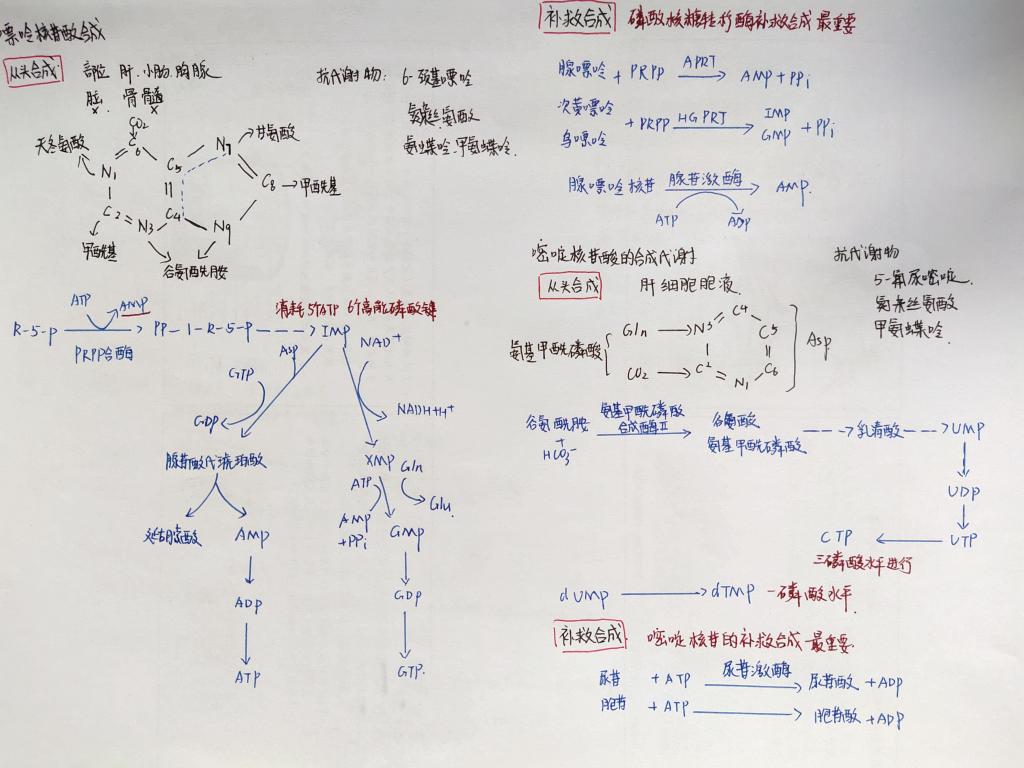 嘌呤核苷酸合成
从头合成 部位 肝.小肠.胸腺
脑 骨髓
抗代谢物: 6-巯基嘌呤
氮杂丝氨酸
氨蝶呤.甲氨蝶呤.
CO2
天冬氨酸
甘氨酸
C6
N7
N1
C5
C8 → 甲酰基
C2
N3
C4
N9
甲酰基
谷氨酰胺
消耗5个ATP 6个高能磷酸键
ATP AMP
R-5-P → PP-1-R-5-P ---→ IMP
PRPP合酶
Asp
NAD+
GTP
GDP
NADH+H+
腺苷酸代琥珀酸
XMP Gln
ATP
Glu.
AMP
+PPi
延胡索酸 AMP
GMP
ADP
GDP
ATP
GTP.
补救合成 磷酸核糖转移酶补救合成最重要
腺嘌呤 + PRPP APRT → AMP+PPi
次黄嘌呤
鸟嘌呤
+PRPP HGPRT →
IMP
GMP
+PPi
腺嘌呤核苷 腺苷激酶 → AMP.
ATP ADP
嘧啶核苷酸的合成代谢
从头合成 肝细胞胞液
抗代谢物
5-氟尿嘧啶.
氮杂丝氨酸
甲氨蝶呤.
氨基甲酰磷酸
Gln → N3
C4
C5
CO2 → C2
N1
C6
Asp
谷氨酰胺
+
HCO3-
氨基甲酰磷酸
合成酶Ⅱ
谷氨酸
氨基甲酰磷酸
---→ 乳清酸 ---→ UMP
UDP
CTP ← UTP
三磷酸水平进行
dUMP → dTMP 一磷酸水平.
补救合成 嘧啶核苷的补救合成最重要.
尿苷 + ATP 尿苷激酶 → 尿苷酸 + ADP
胞苷 + ATP → 胞苷酸 + ADP